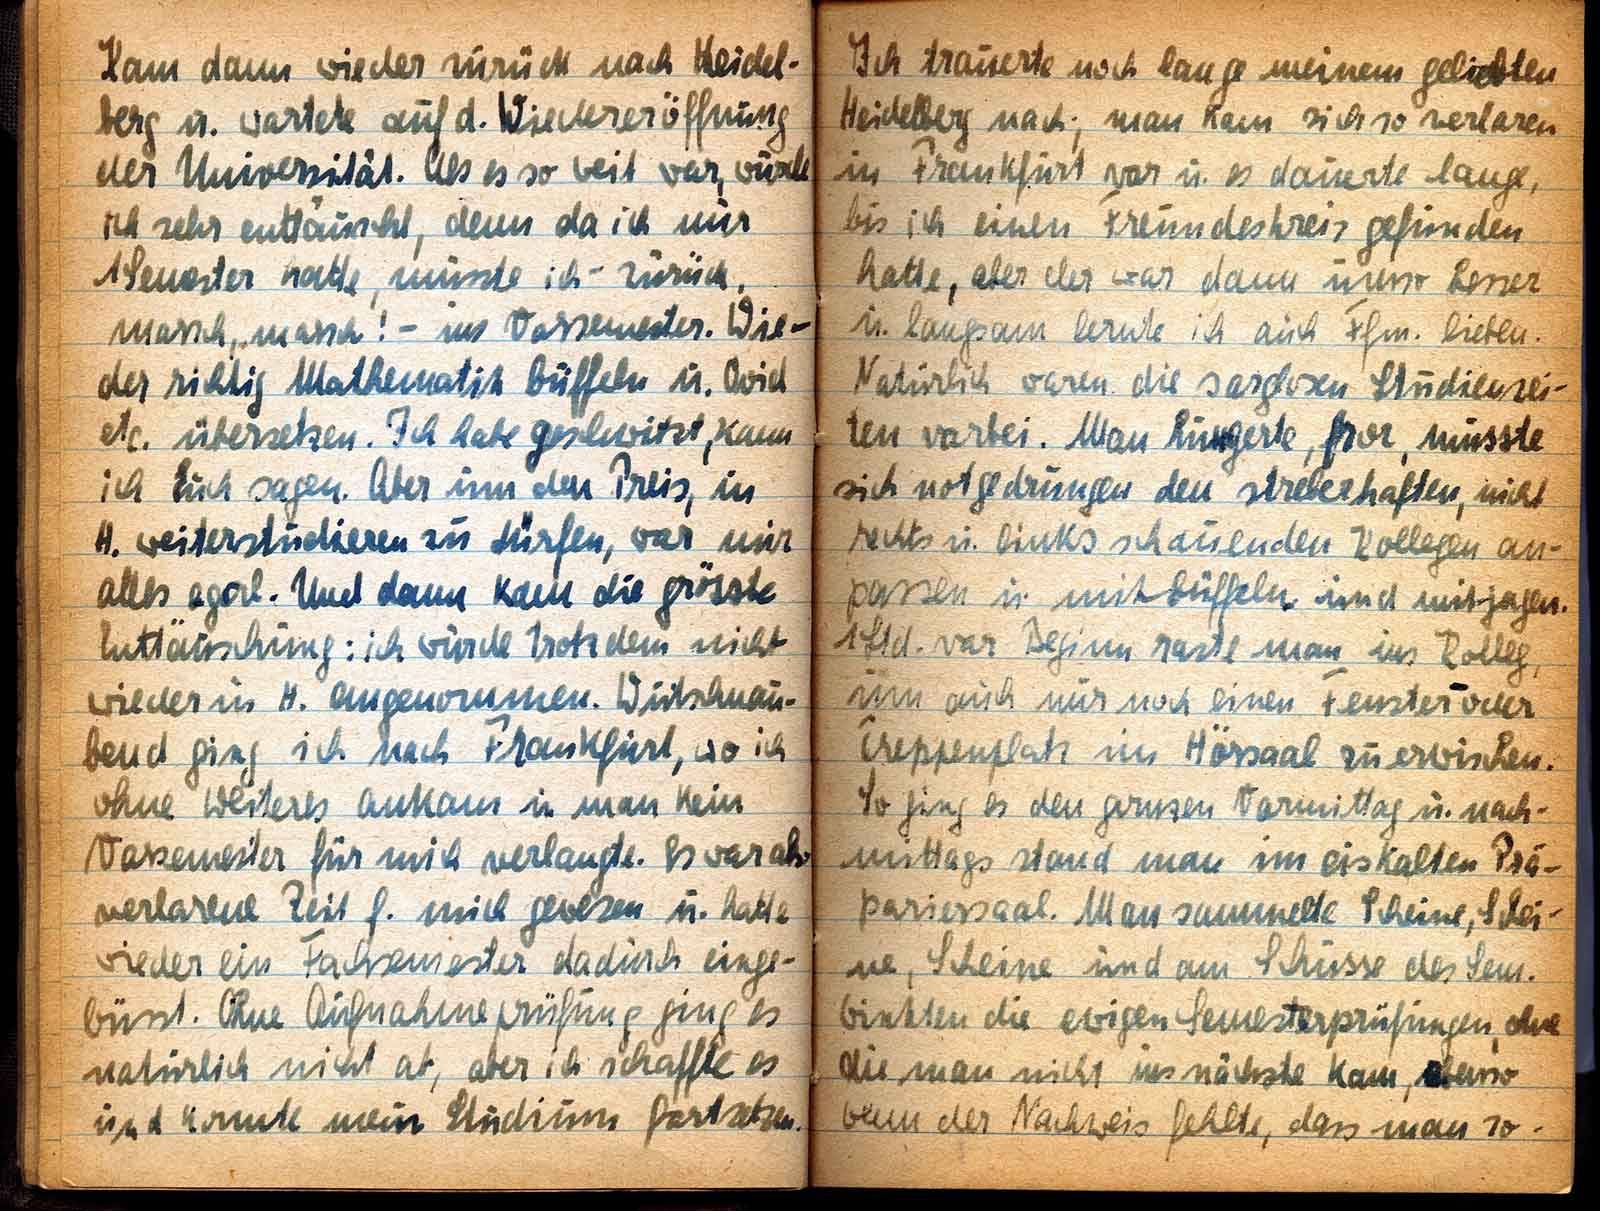 Kam dann wieder zurück nach Heidel-
berg u. wartete auf d. Wiedereröffnung
der Universität. Als es so weit war, wurde
ich sehr enttäuscht, denn da ich nur
1 Semester hatte, musste ich - zurück,
marsch, marsch! - ins Vorsemester. Wie-
der richtig Mathematik büffeln u. Ovid
etc. übersetzen. Ich habe geschwitzt, kann
ich Euch sagen. Aber um den Preis, in
H. weiterstudieren zu dürfen, war mir
alles egal. Und dann kam die grösste
Enttäuschung: ich wurde trotzdem nicht
wieder in H. angenommen. Wutschnau-
bend ging ich nach Frankfurt, wo ich
ohne weiteres ankam u. man kein
Vorsemester für mich verlangte. Es war also
verlorene Zeit f. mich gewesen u. hatte
wieder ein Fachsemester dadurch einge-
büsst. Ohne Aufnahmeprüfung ging es
natürlich nicht ab, aber ich schaffte es
und konnte mein Studium fortsetzen.
Ich trauerte noch lange meinem geliebten
Heidelberg nach; man kam sich so verloren
in Frankfurt vor u. es dauerte lange,
bis ich einen Freundeskreis gefunden
hatte, aber der war dann umso besser
u. langsam lernte ich auch Ffm. lieben.
Natürlich waren die sorglosen Studienzei-
ten vorbei. Man hungerte, fror, musste
sich notgedrungen den streberhaften, nicht
rechts u. links schauenden Kollegen an-
passen u. mitbüffeln und mitjagen.
1 Std. vor Beginn raste man ins Kolleg,
um auch nur noch einen Fenster oder
Treppenplatz im Hörsaal zu erwischen.
So ging es den ganzen Vormittag u. nach-
mittags stand man im eiskalten Prä-
pariersaal. Man sammelte Scheine, Schei-
ne, Scheine und am Schlusse des Sem.
winkten die ewigen Semesterprüfungen, ohne
die man nicht ins nächste kam, ebenso
wenn der Nachweis fehlte, dass man so-